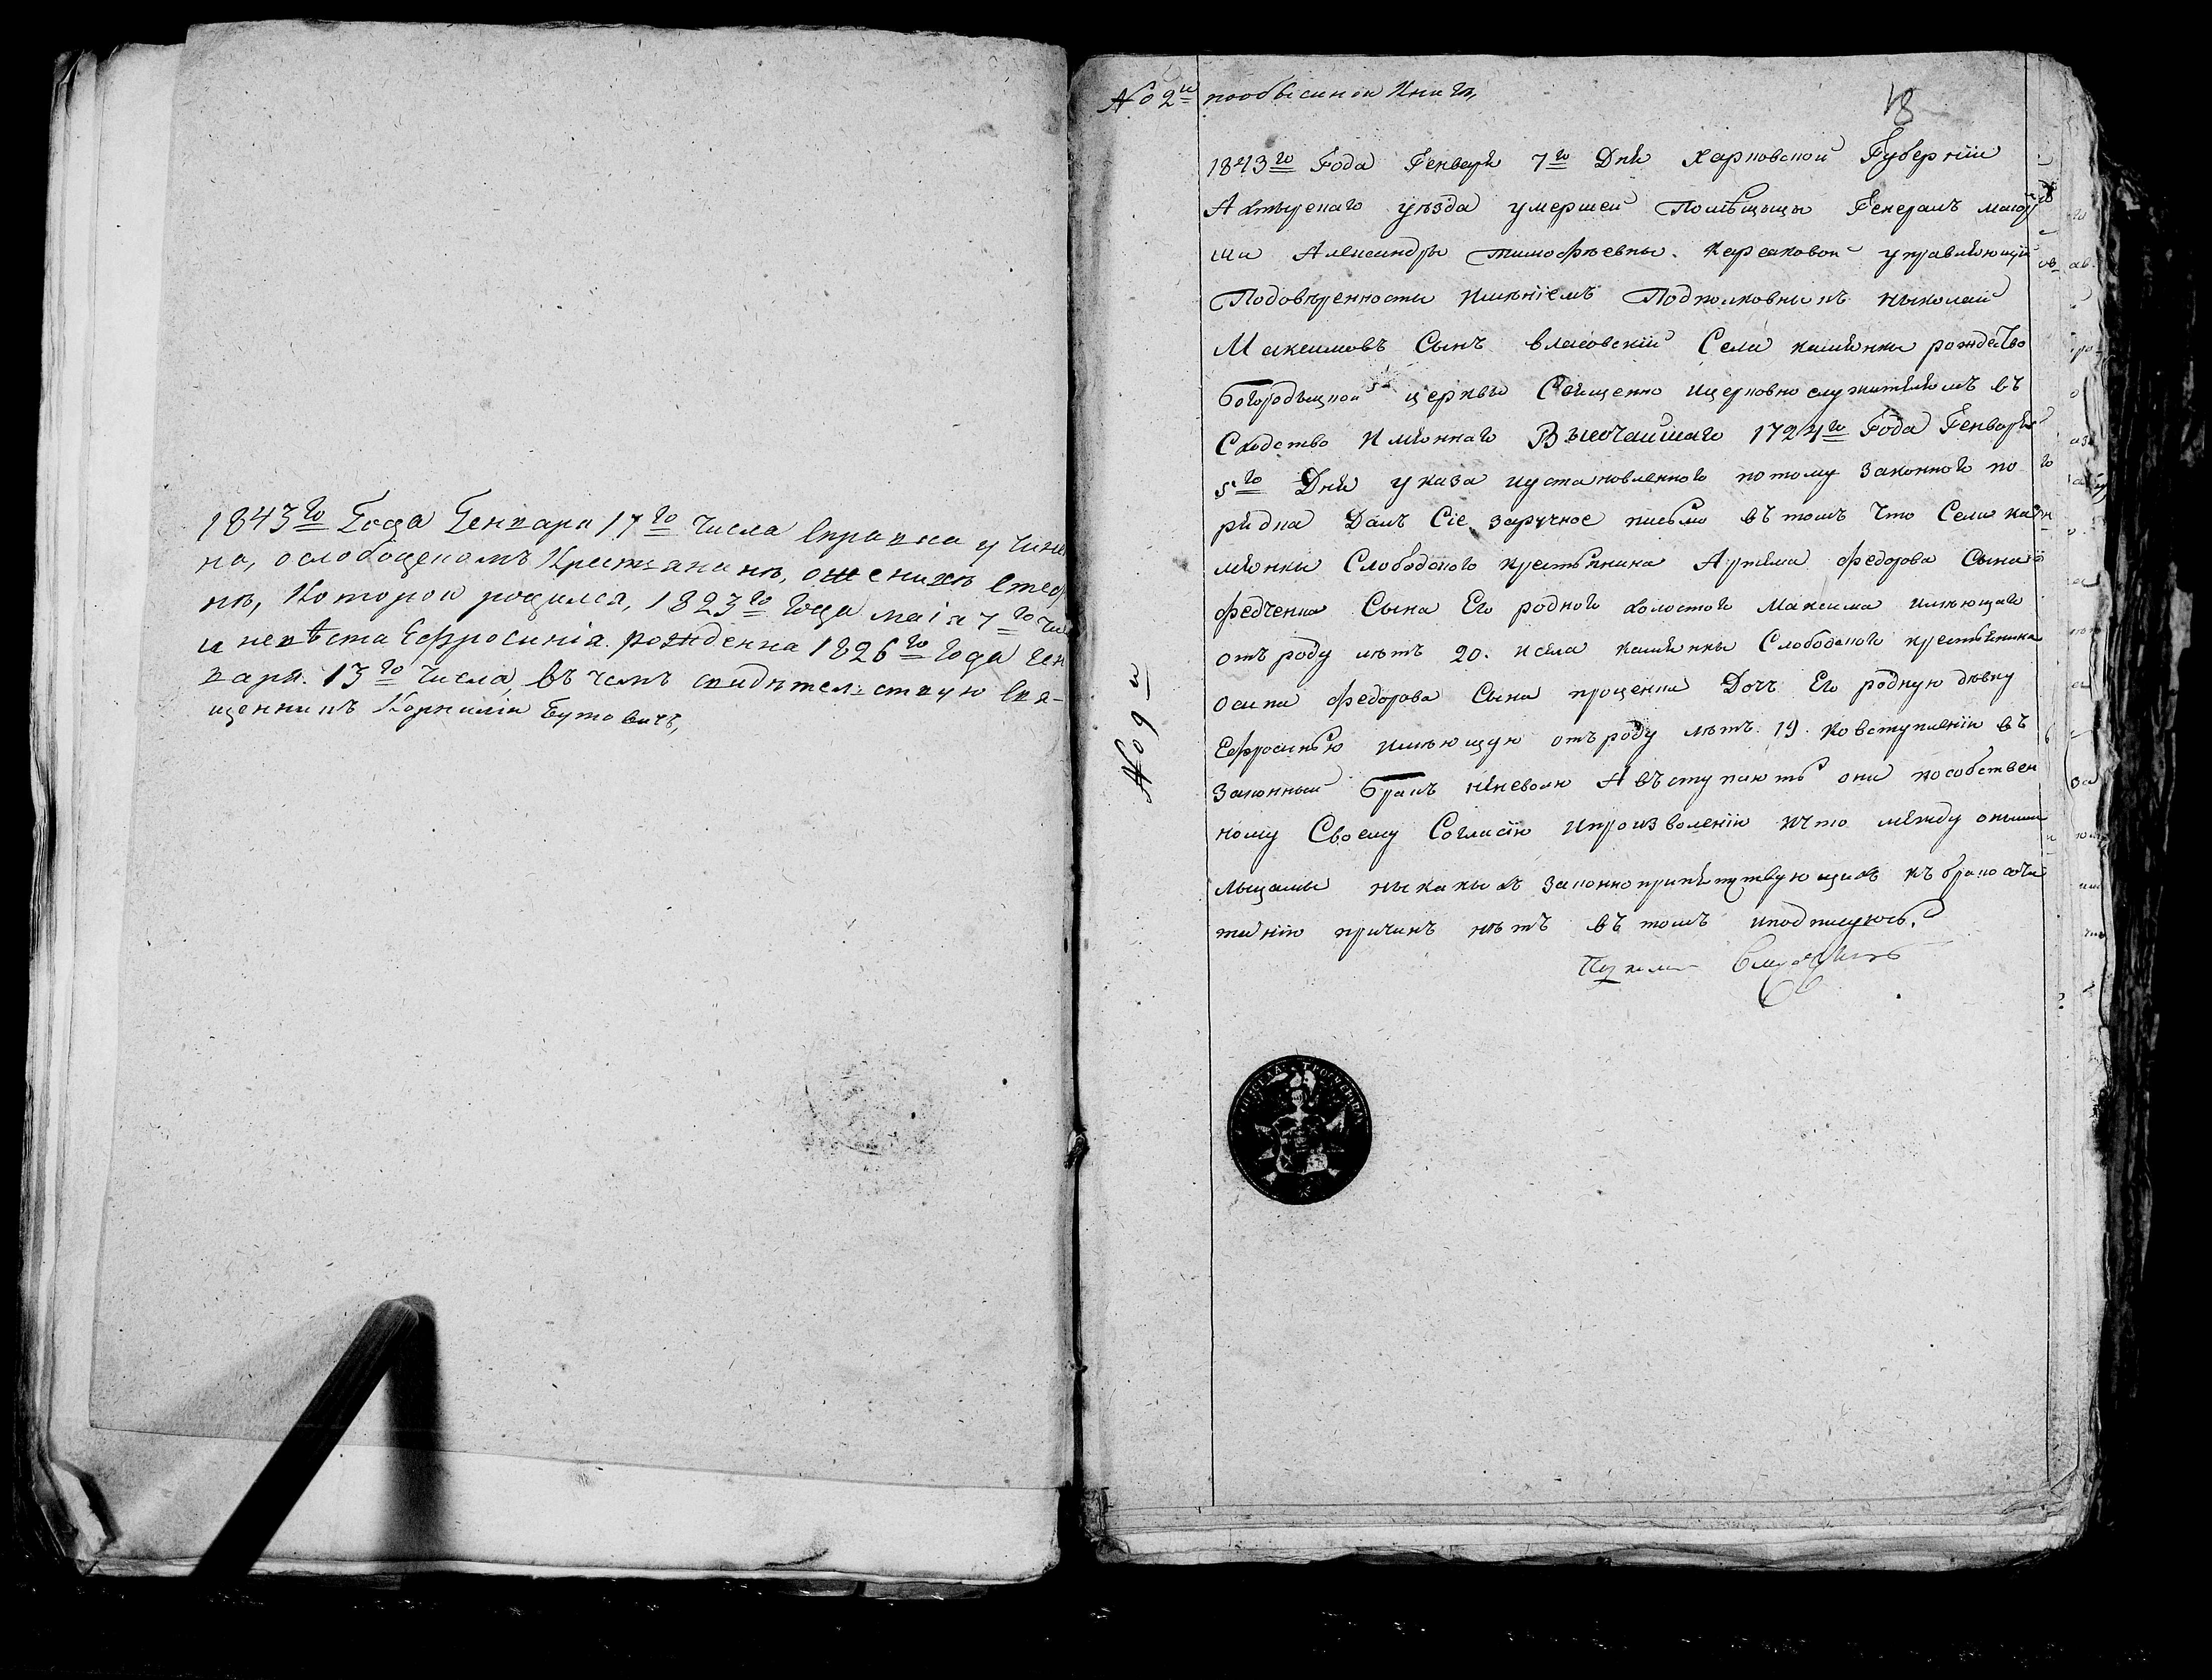 1843го Года Генваря 17го числа справка учине
на, ослобоценомъ Крестьянинѣ, ожених Стеф
нѣ, Которои родился, 1823го года маія 7го чи
и невѣста Ефросинія рожденна 1826го года ген
варя 13го числа, въ чемъ свидѣтелствую Свя-
щенникъ Корнилій Бутовичъ,
No 2й пообысной Книги,
18
1843го Года Генваря 7го Дня Харковской Губерніи
Ахтырскаго уѣзда умершей Помѣщыцы Генералъ маіор
ши Александры тимофѣевны Карсаковой управляющій
Подовѣренности имѣніемъ Подполковникъ николай
Максимовъ Сынъ власовскій Села камянки рождество
богородыцной церквы Священно ицерковно служителямъ въ
Сходство Имянного Высочайшаго 1724го Года Генваря
5го Дня указа иустановленного потому законного по
рядка Далъ Сіе заручное письмо въ томъ Что Села ка
мянки Слободского крестьянина Артема федорова Сына
федченка Сына Его родного холостого Максима имѣющаго
отъ роду лѣтъ 20. исела камянки Слободского крестьянина
осипа федорова Сына проценка Дочъ Его родную дѣвку
Ефросинью имѣющую отъ роду лѣтъ 19. ковступленію въ
законный бракъ неневолю А въступаютъ они пособствен
ному Своему Согласію ипроизволенію ичто между оными
лыцамы ныкакыхъ законнопрепятствующихъ къ бракосоче
танію причинъ нѣтъ въ томъ иподписуюсь.
No 9й